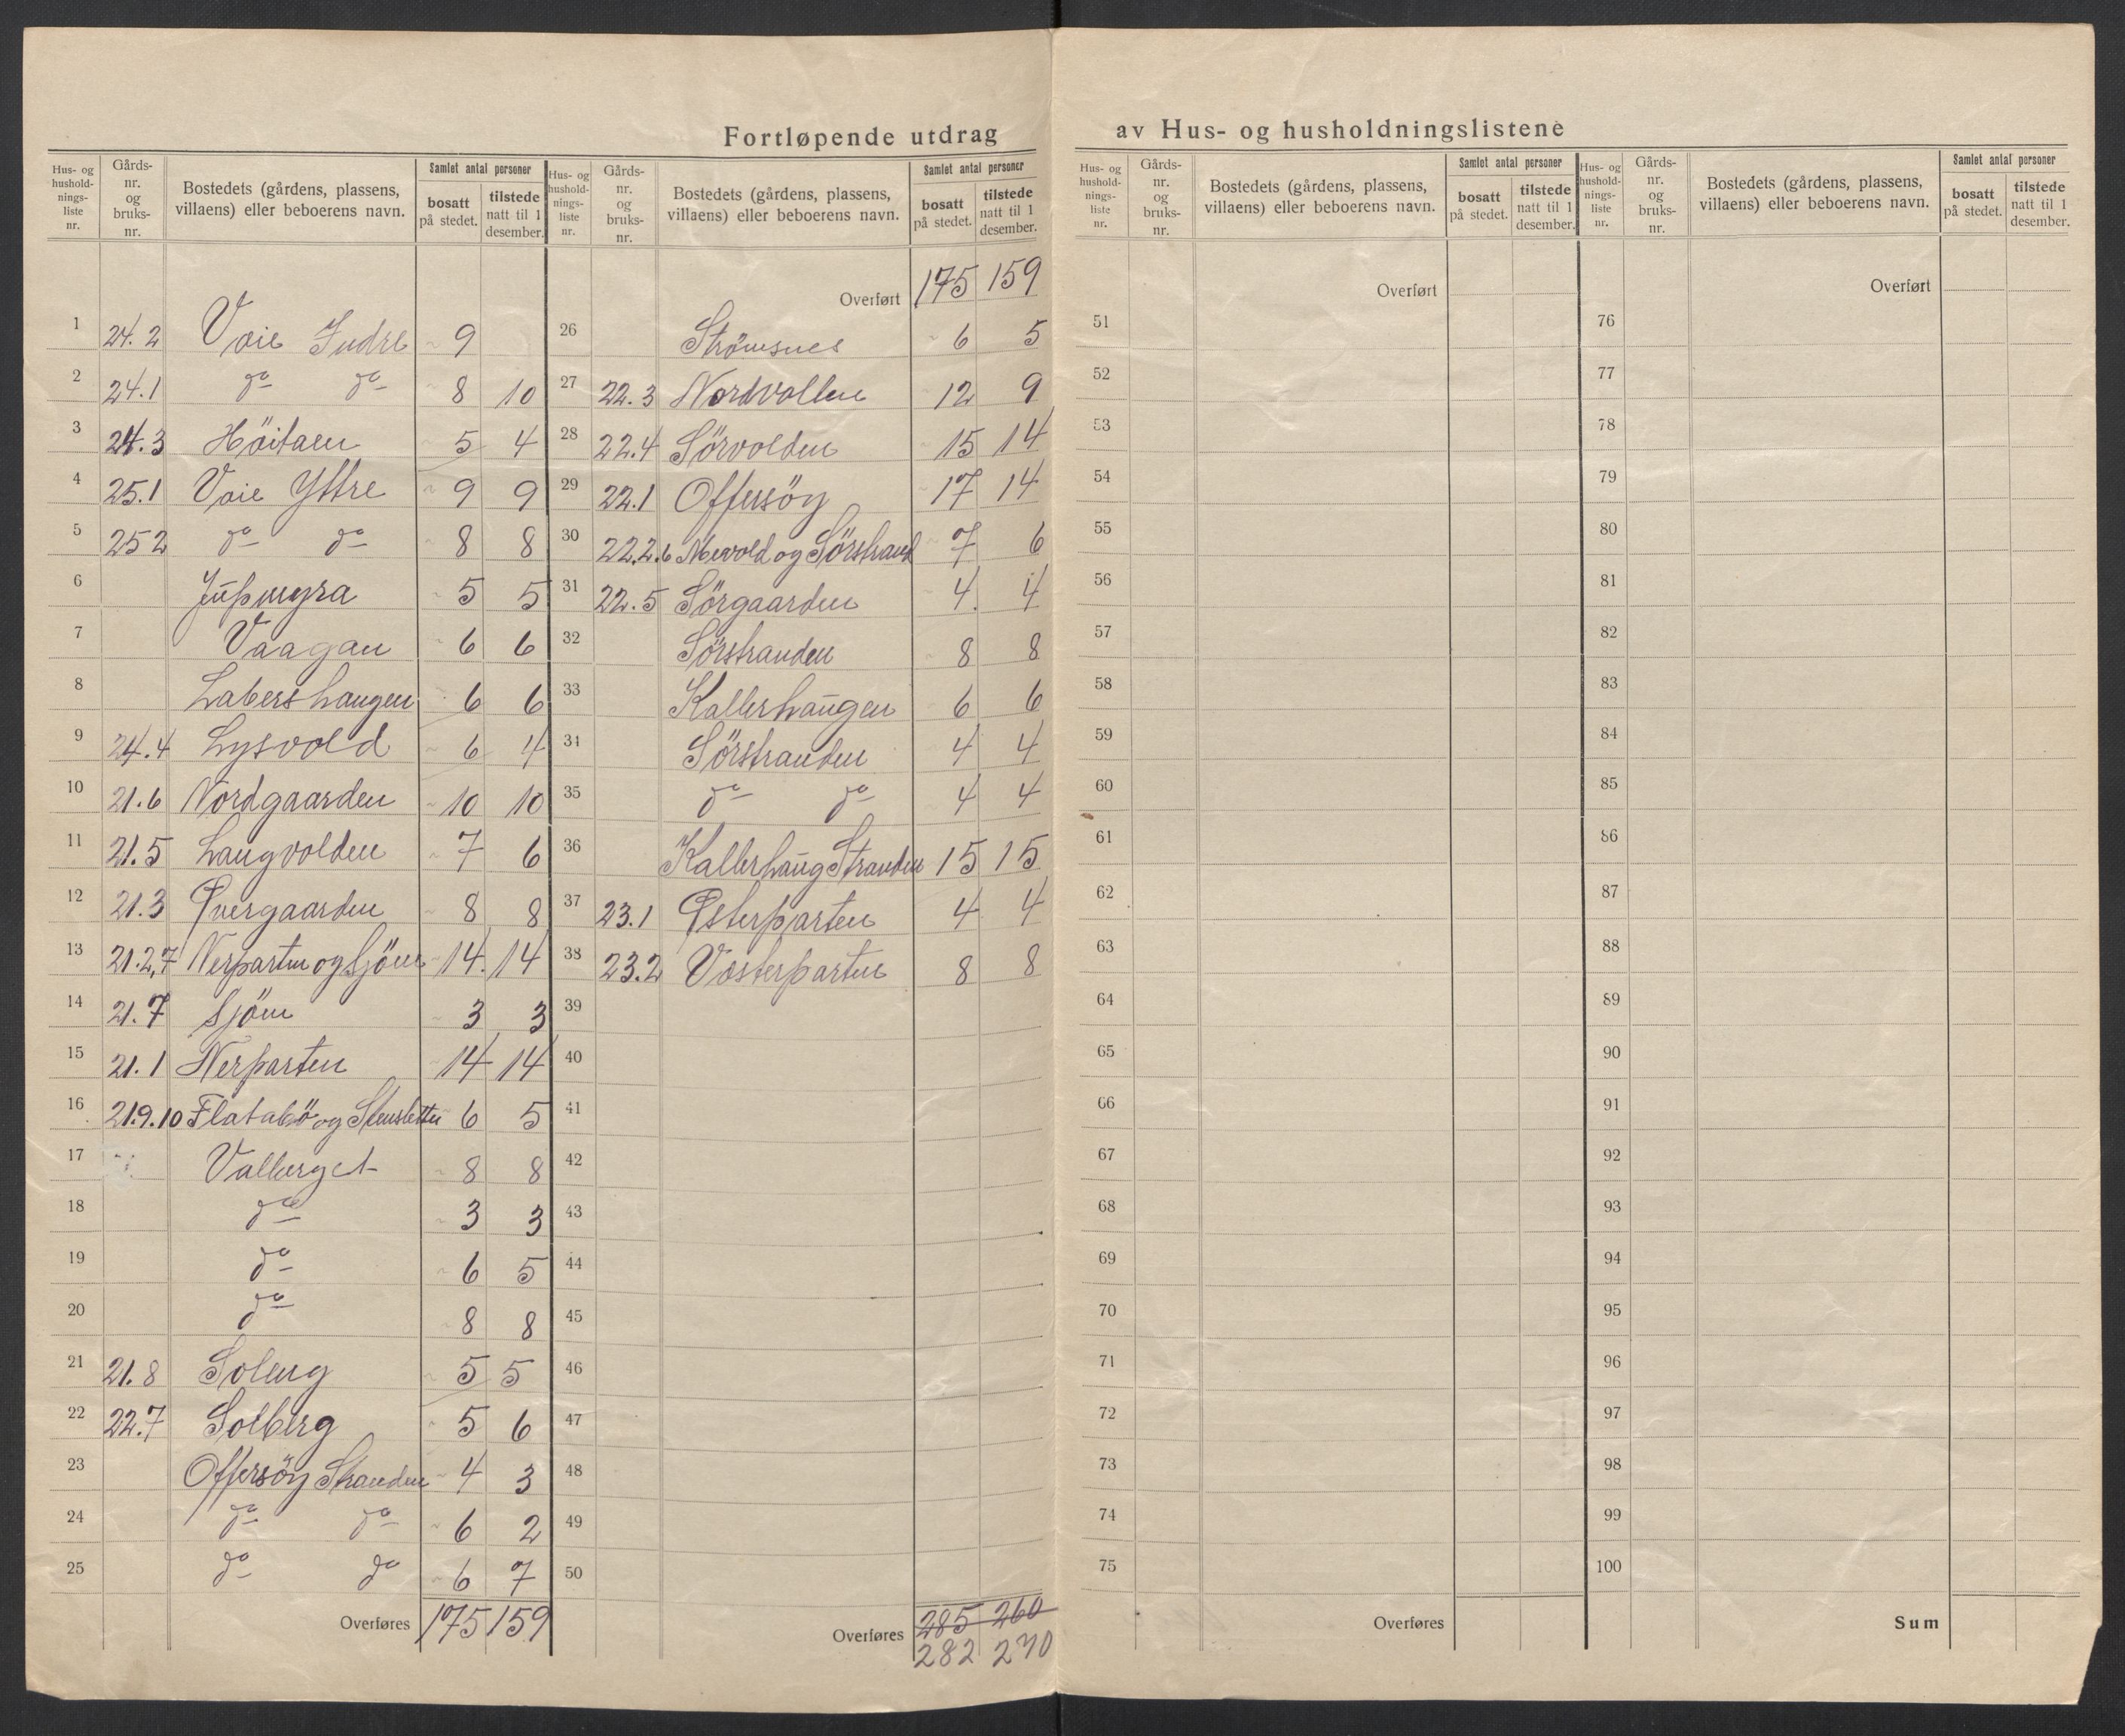 Fortløpende utdrag av Hus- og husholdningslistene
Hus- og husholdningsliste nr. | Gårds-nr. og bruks-nr. | Bostedets (gårdens, plassens, villaens) eller beboerens navn. | Samlet antal personer bosatt på stedet. | tilstede natt til 1 desember.
1 24.2 Vaie Indre 9
2 24.1 do do 8 10
3 24.3 Höitaen 5 4
4 25.1 Vaie Yttre 9 9
5 25 2 do do 8 8
6 5 5
7 Vaagan 6 6
8 Labershaugen 6 6
9 24.4 Lysvold 6 4
10 21.6 Nordgaarden 10 10
11 21.5 Langvolden 7 6
12 21.3 Øvergaarden 8 8
13 21.2,7 Nerparten og Sjöen 14 14
14 21.7 Sjöen 3 3
15 21.1 Nerparten 14 14
16 21.9.10 Flatabö og Stensletten 6 5
17 Valberget 8 8
18 do 3 3
19 do 6 5
20 do 8 8
21 21.8 Soberg 5 5
22 22.7 Solberg 5 6
23 Offersöy Stranden 4 3
24 do do 6 2
25 do do 6 7
Overføres 175 159
Hus- og husholdningsliste nr. | Gårds-nr. og bruks-nr. | Bostedets (gårdens, plassens, villaens) eller beboerens navn. | Samlet antal personer bosatt på stedet. | tilstede natt til 1 desember.
Overført 175 159
26 Strömsnes 6 5
27 22.3 Nordvollen 12 9
28 22.4 Sörvolden 15 14
29 22.1 Offersöy 17 14
30 22.2.6 Mevold og Sörstrand 7 6
31 22.5 Sörgaarden 4 4
32 Sörstranden 8 8
33 Kallerhaugen 6 6
34 Sörstranden 4 4
35 do do 4 4
36 Kallerhaug Stranden 15 15
37 23.1 Østerparten 4 4
38 23.2 Vesterparten 8 8
39
40
41
42
43
44
45
46
47
48
49
50
Overføres 285 260
282 270
Hus- og husholdningsliste nr. | Gårds-nr. og bruks-nr. | Bostedets (gårdens, plassens, villaens) eller beboerens navn. | Samlet antal personer bosatt på stedet. | tilstede natt til 1 desember.
Overført
51
52
53
54
55
56
57
58
59
60
61
62
63
64
65
66
67
68
69
70
71
72
73
74
75
Overføres
Hus- og husholdningsliste nr. | Gårds-nr. og bruks-nr. | Bostedets (gårdens, plassens, villaens) eller beboerens navn. | Samlet antal personer bosatt på stedet. | tilstede natt til 1 desember.
Overført
76
77
78
79
80
81
82
83
84
85
86
87
88
89
90
91
92
93
94
95
96
97
98
99
100
Sum